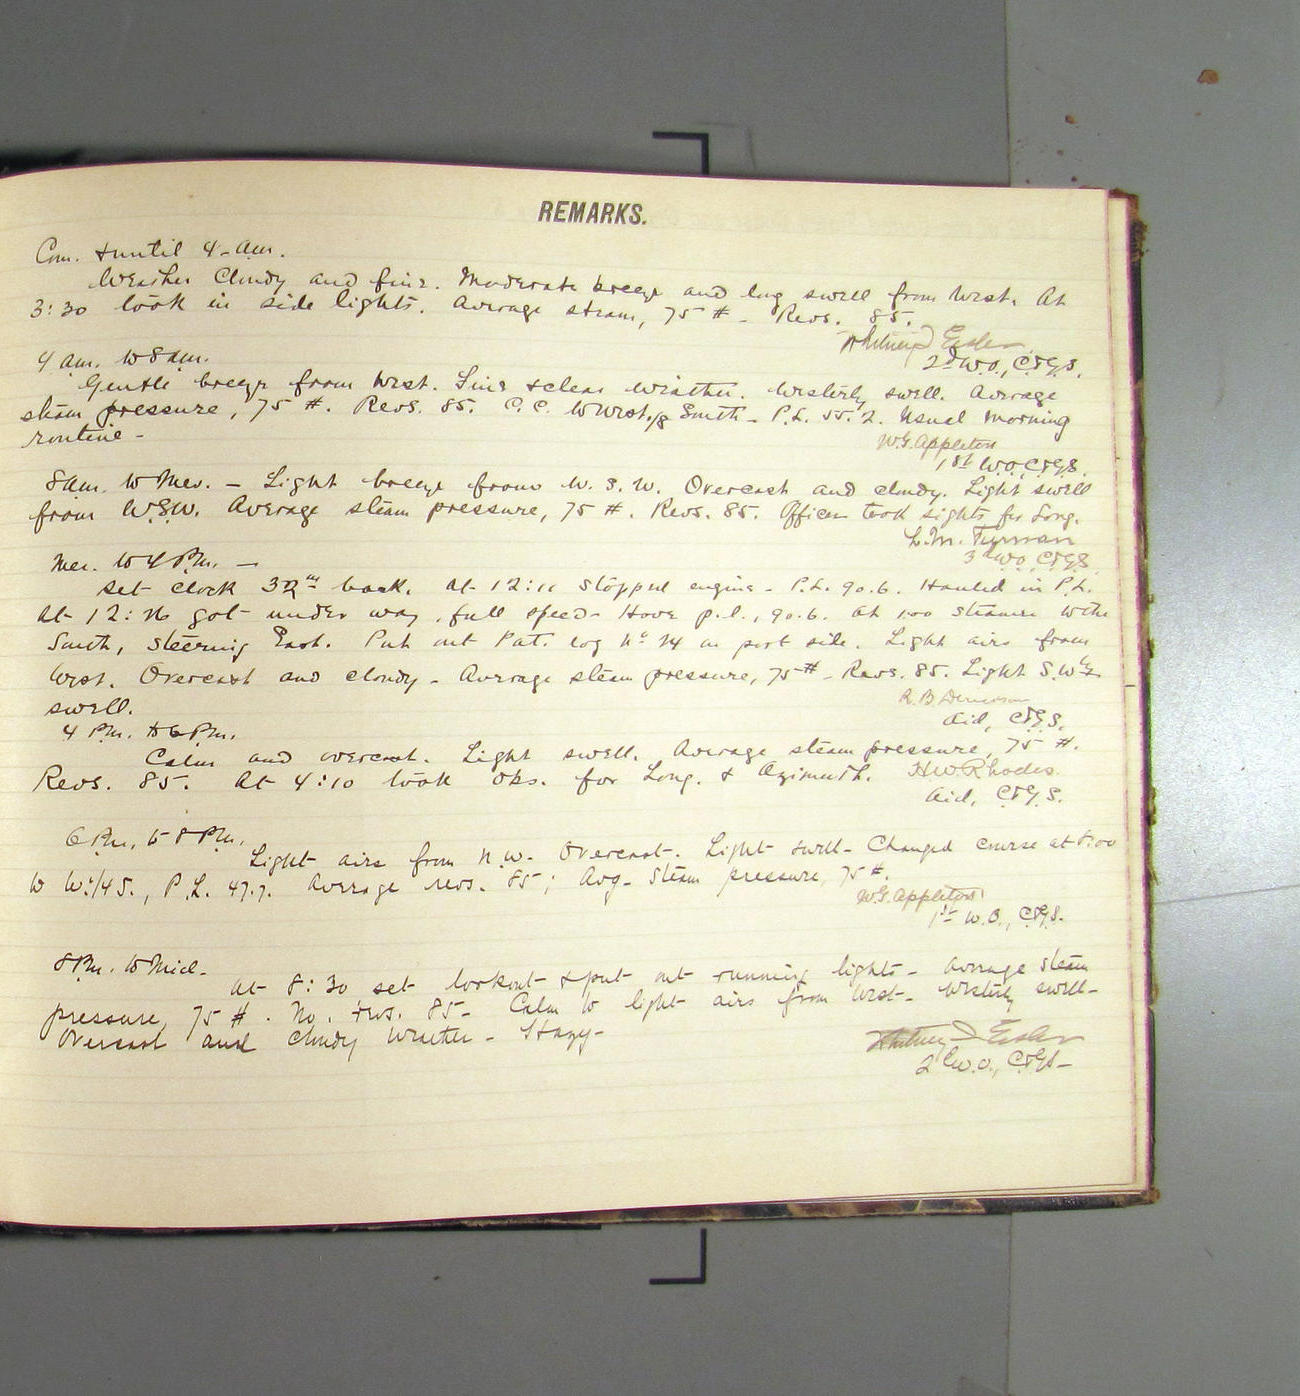 REMARKS.
Com. & until 4 - am.
Weather Cloudy and fine. Moderate breeze and long swell from West. At
3:30 took in side lights. Average steam, 75 #. Revs. 85.
2d W.O., C&GS.
4 am. to 8 am.
Gentle breeze from West. Fine & clear weather. Westerly swell. Average
steam pressure, 75 #. Revs. 85. C.C. to West, South - P.L. 55.2. Usual morning
routine -
W.G. Appleton
1st W.O. C&GS.
8 am. to Mer. - Light breeze from W.S.W. Overcast and cloudy. Light swell
from W.S.W. Average steam pressure, 75 #. Revs. 85. Officer took sights for Long.
3d W.O. C&GS
Mer. to 4 Pm. -
Set clock back. At 12:11 stopped engine - P.L. 90.6. Hauled in P.L.
At 12: got under way, full speed - Hove p.l., 90.6. At 1:00 steamer to the
South, steering East. Put out Pat. log No 14 on port side. Light airs from
West. Overcast and cloudy - Average steam pressure, 75 # - Revs. 85. Light S.W.
swell.
R.B.
Aid, C&G.S.
4 Pm. to 6 Pm.
Calm and overcast. Light swell. Average steam pressure, 75 #.
Revs. 85. At 4:10 took obs. for Long. & Azimuth. H.W. Rhodes
Aid, C&G.S.
6 Pm. to 8 Pm.
Light airs from N.W. Overcast. Light swell - Changed course at 8:00
to W.1/4 S., P.L. 47.7. Average revs. 85; Avg. steam pressure, 75 #.
W.G. Appleton
1st W.O., C&GS.
8 Pm. to Mid.
At 8:30 set lookout & put out running lights - Average steam
pressure, 75 #. No. revs. 85 - Calm to light airs from West - Westerly swell -
Overcast and cloudy weather - Hazy -
2d W.O., C&GS -